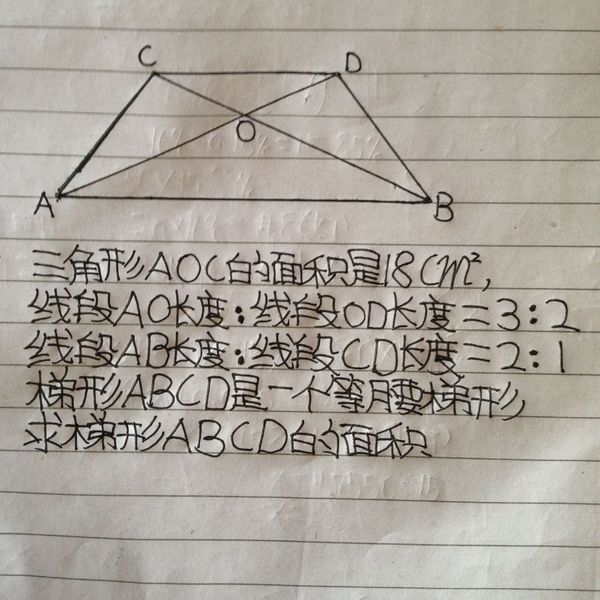 C
D
O
A
B
三角形AOC的面积是18cm²,
线段AO长度:线段OD长度=3:2
线段AB长度:线段CD长度=2:1
梯形ABCD是一个等腰梯形
求梯形ABCD的面积